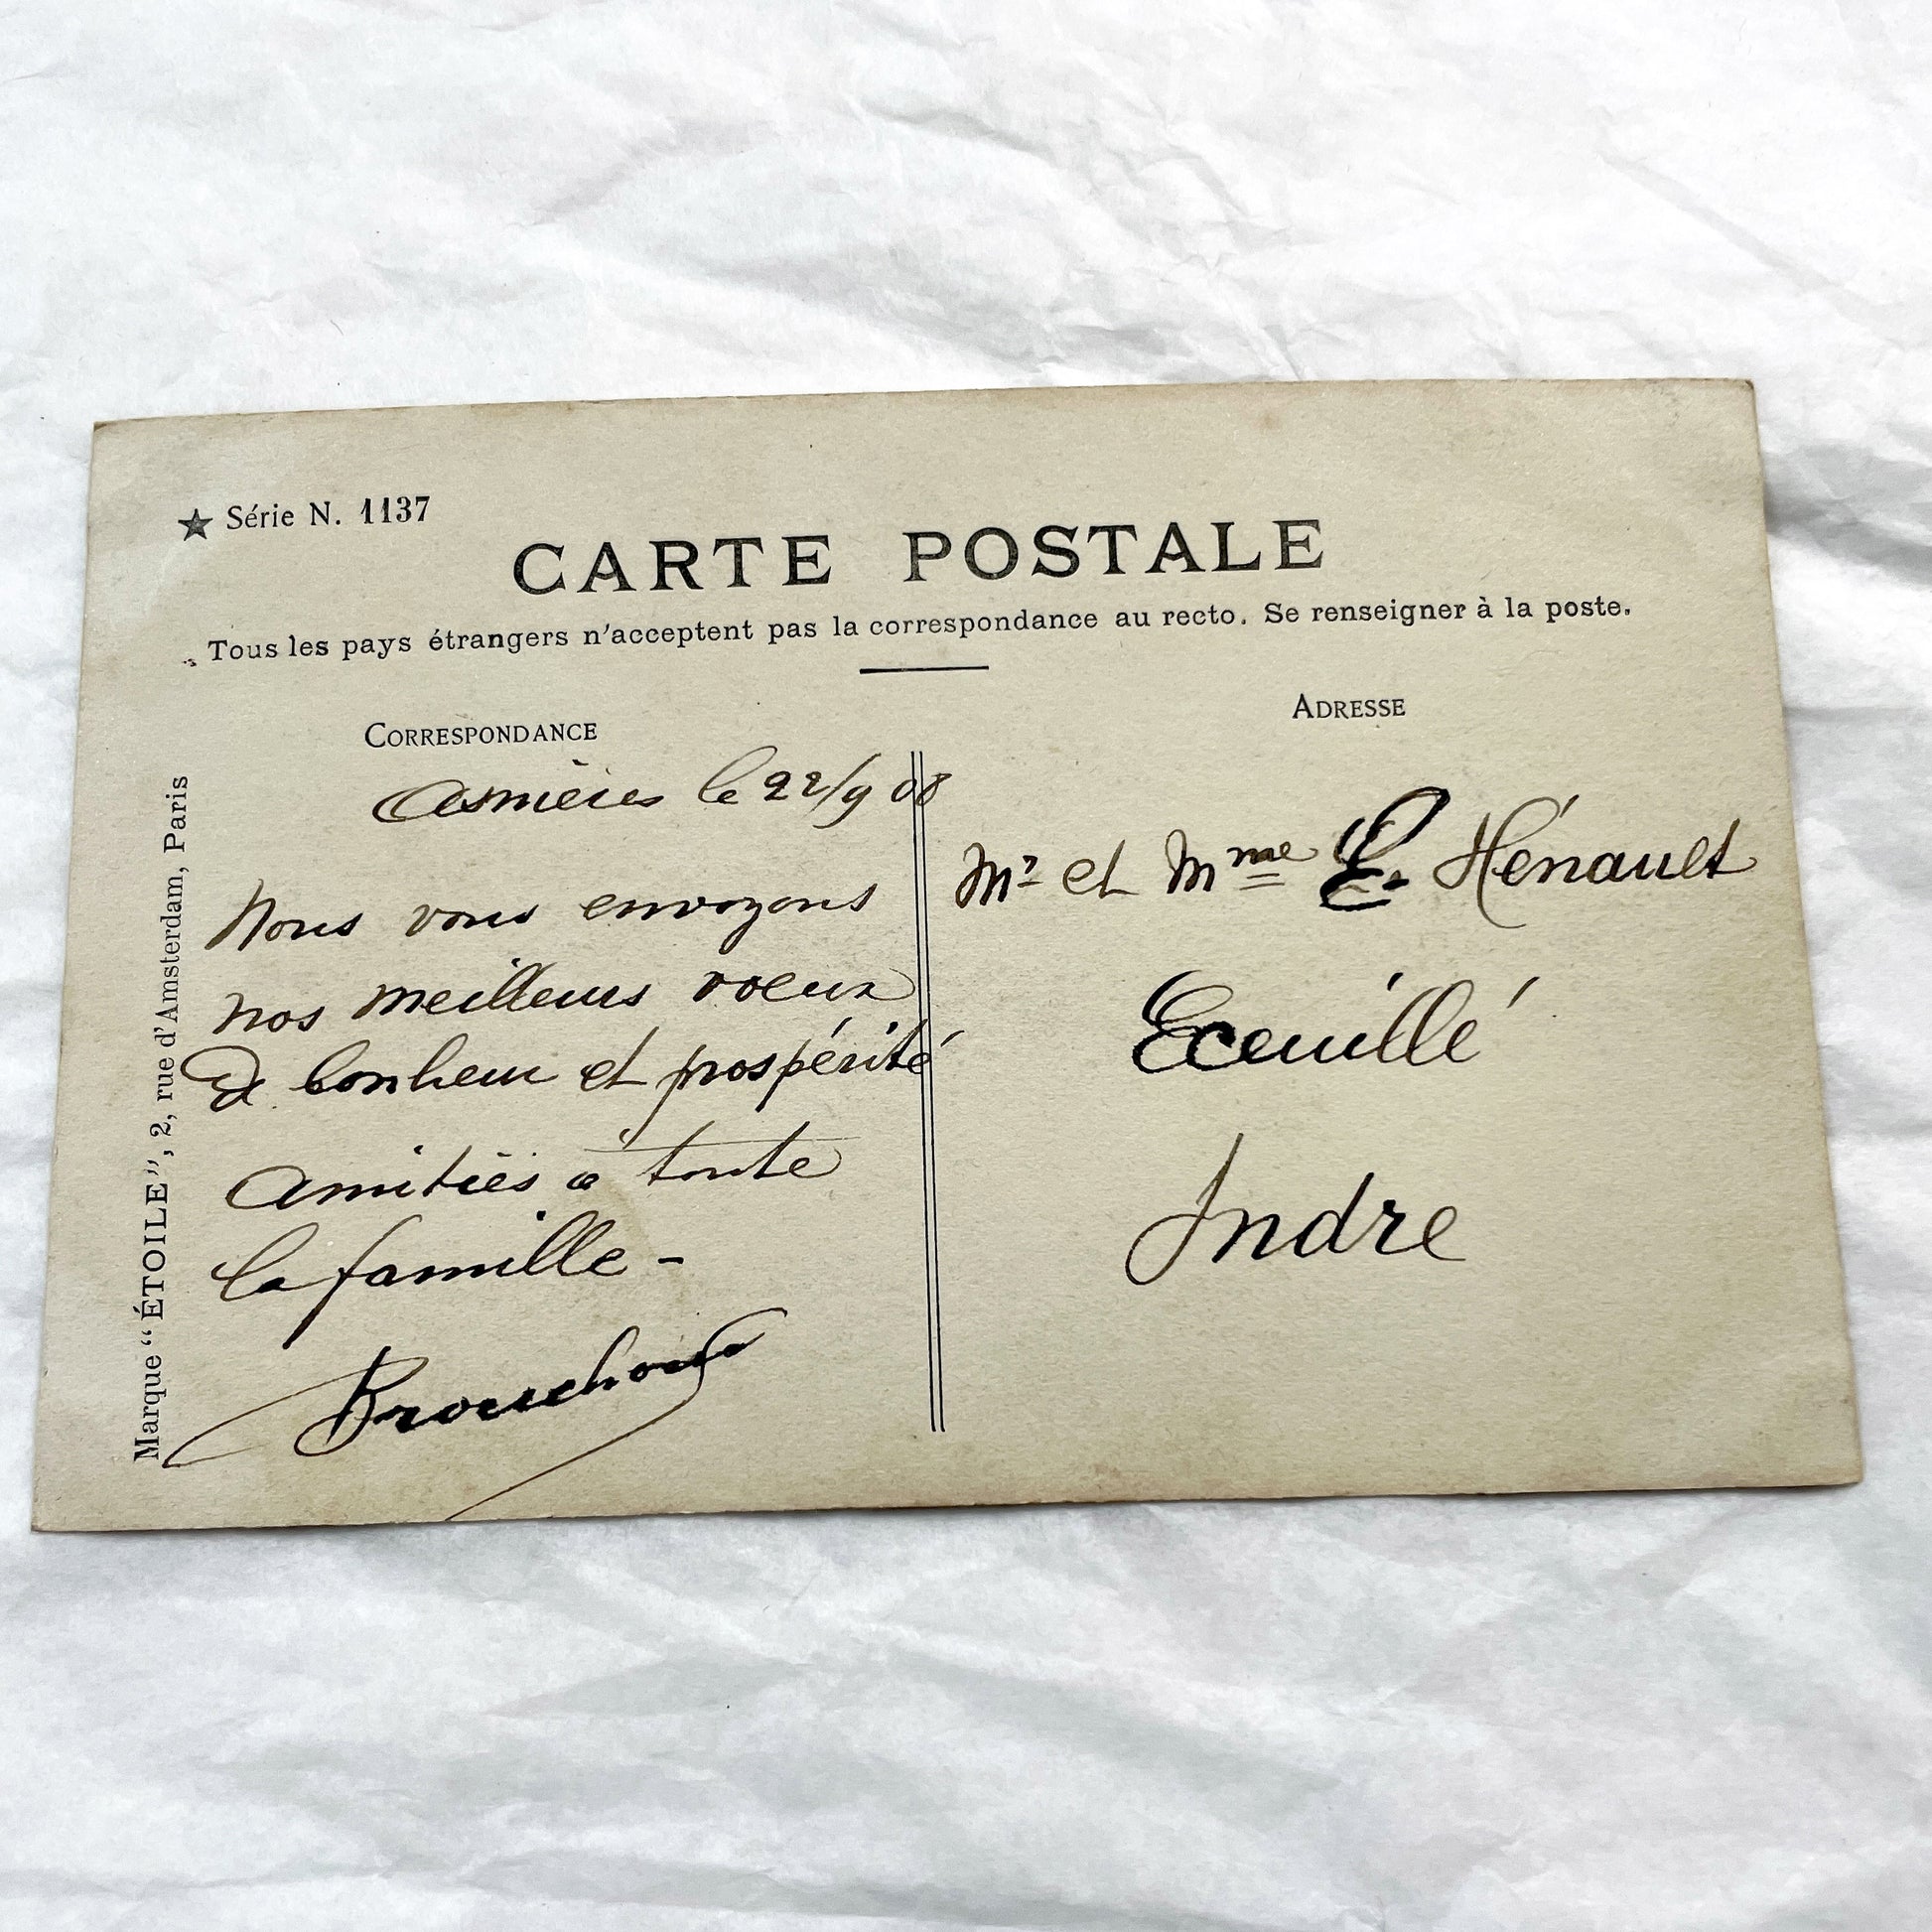 ★ Série N. 1137
CARTE POSTALE
Tous les pays étrangers n'acceptent pas la correspondance au recto. Se renseigner à la poste.
CORRESPONDANCE
Asnières le 22/9 08
Nous vous envoyons
nos meilleurs voeux
de bonheur et prospérité
Amitiés à toute
la famille -
ADRESSE
Mr et Mme E. Hénault
Ecueillé
Indre
Marque "ÉTOILE", 2, rue d'Amsterdam, Paris